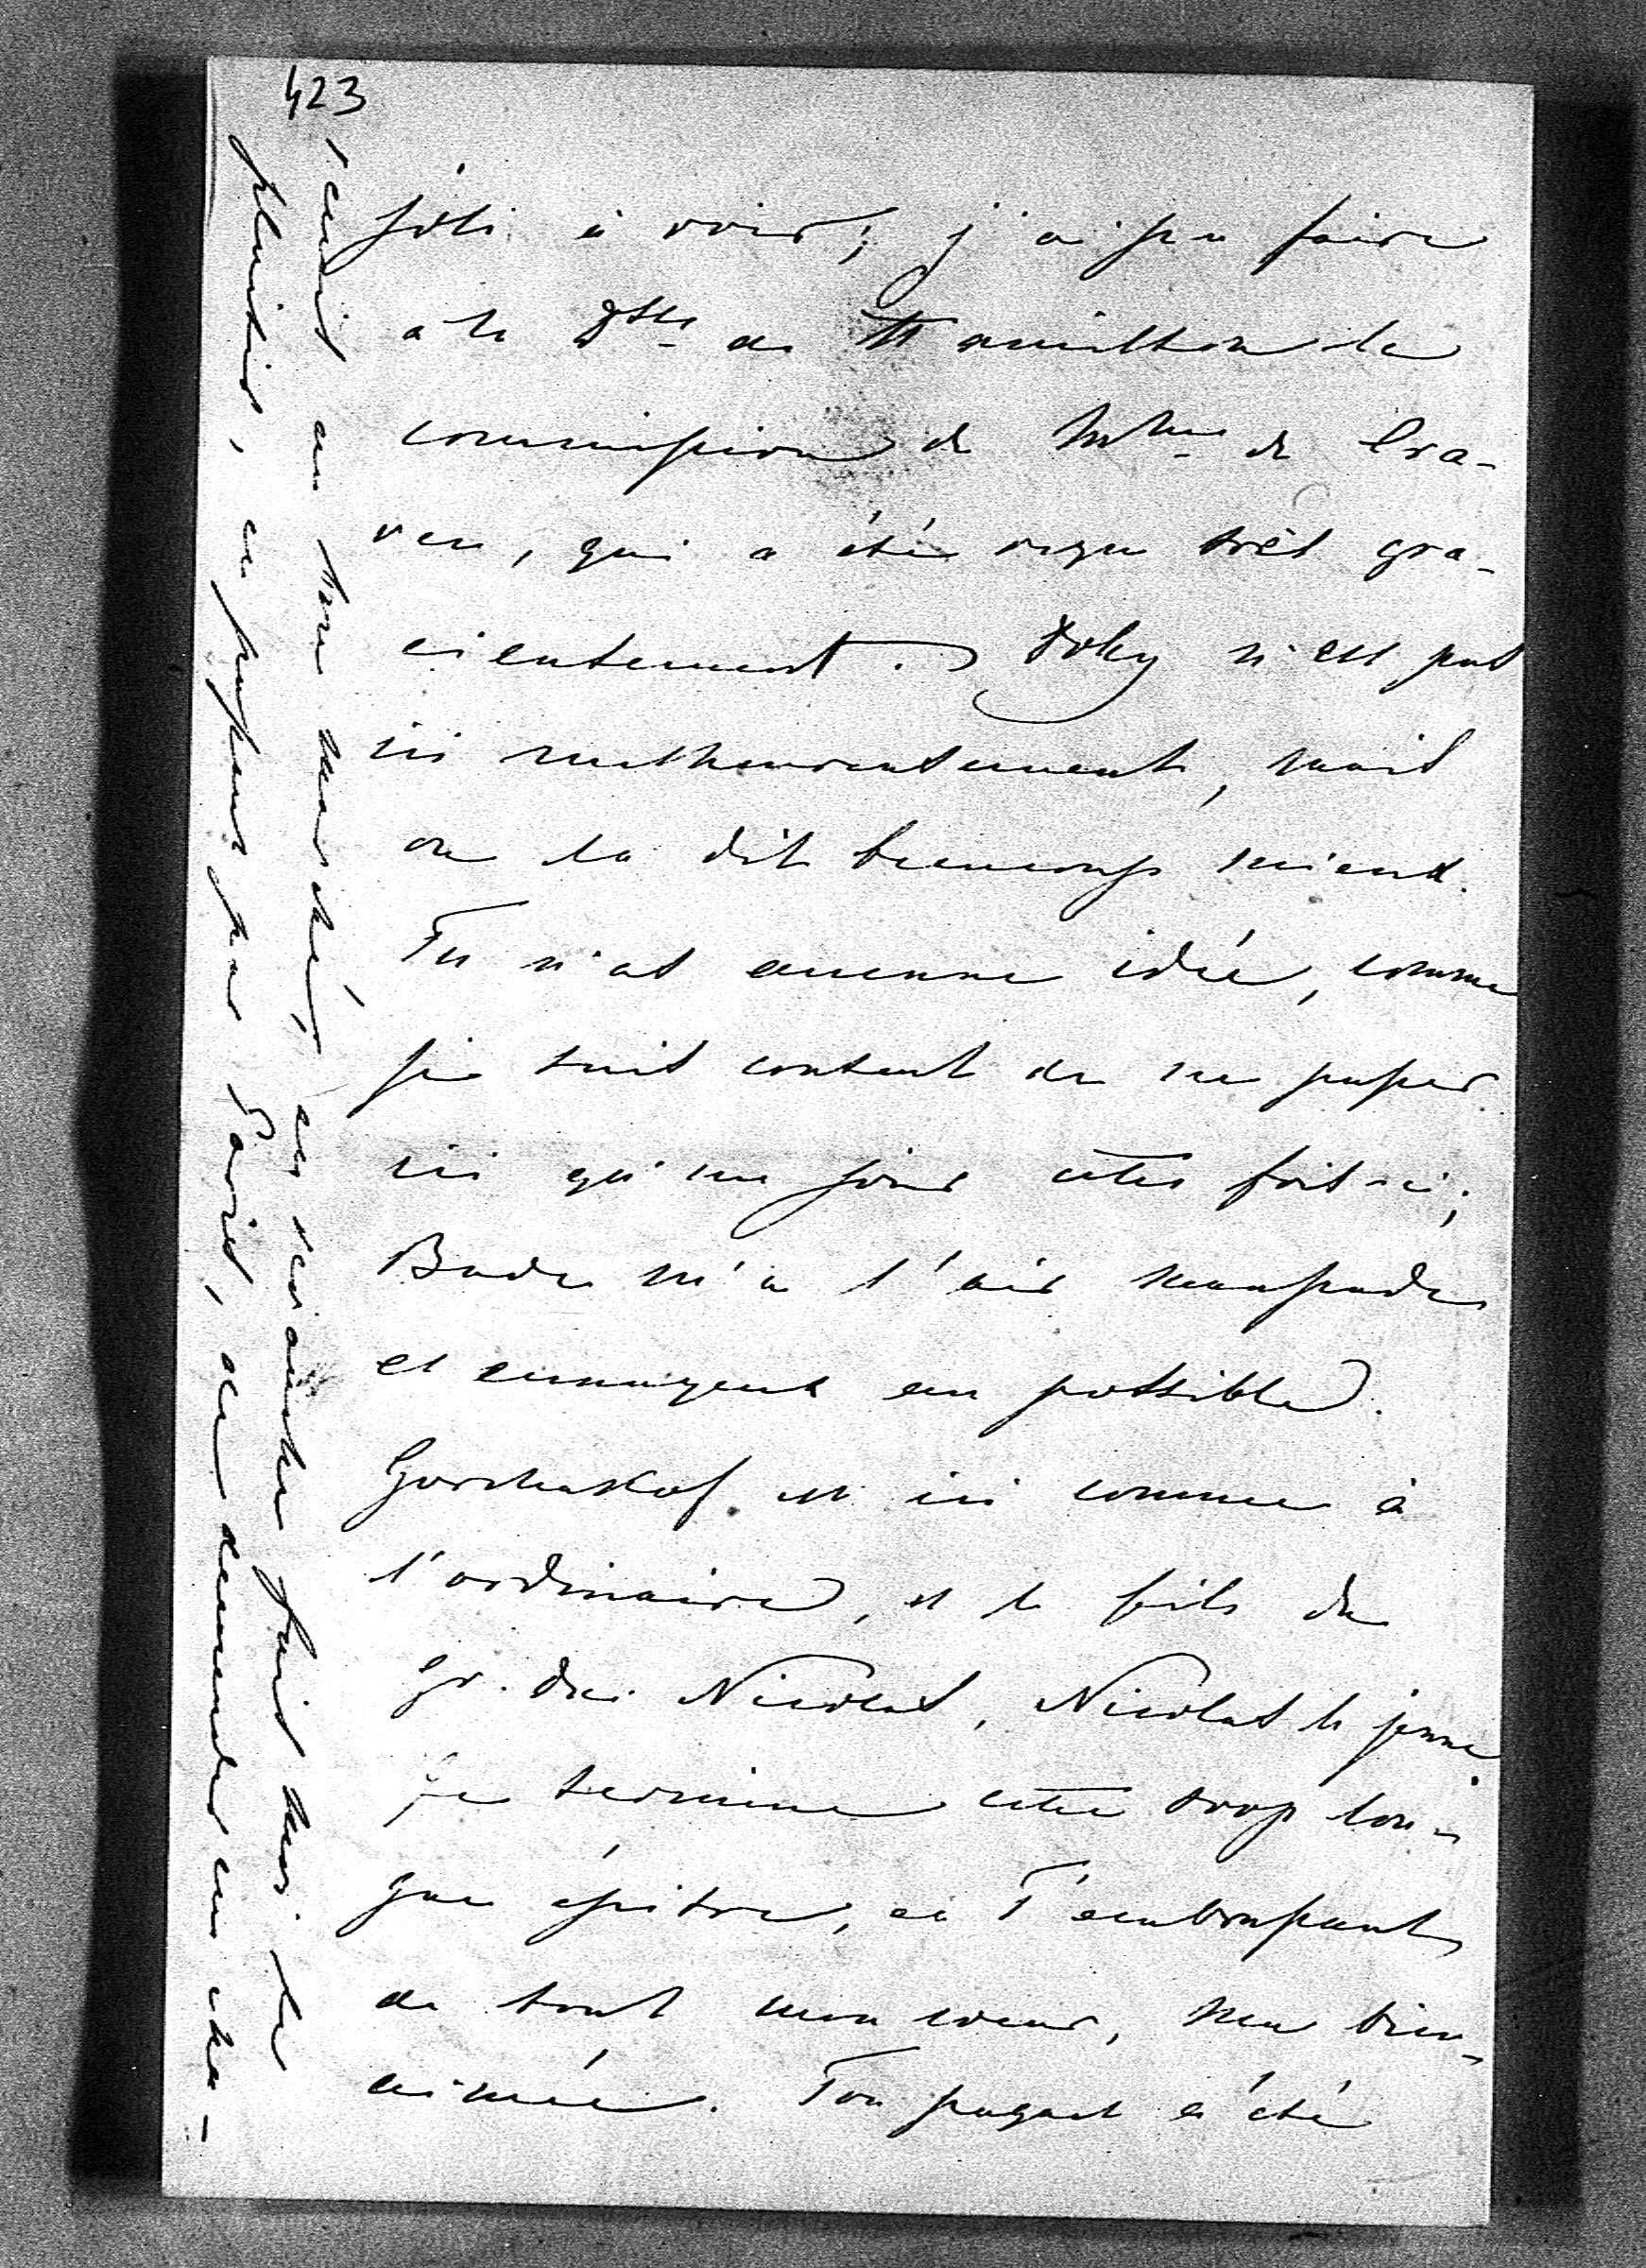 423
joli à voir; j'ai pu faire
à la Dsse de Hamilton la
commission de Mme de Cra-
ven, qui a été reçu très gra-
cieusement. Doky n'est pas
ici malheureusement, mais
on la dit beaucoup mieux.
Tu n'as aucune idée, comme
je suis content de ne passer
ici qu'un jour cette fois-ci;
Bade m'a l'air maussade
et ennuyeux au possible.
Gorchakof est ici comme à
l'ordinaire, et le fils du
Gr. duc Nicolas, Nicolas le jeune.
Je termine cette trop lon-
gue épitre, en T'embrassant
de tout mon coeur, ma bien-
aimée. Ton paquet a été
remis au bon marché, en revanche fais moi le
plaisir, en passant par Paris, de demander un cha-